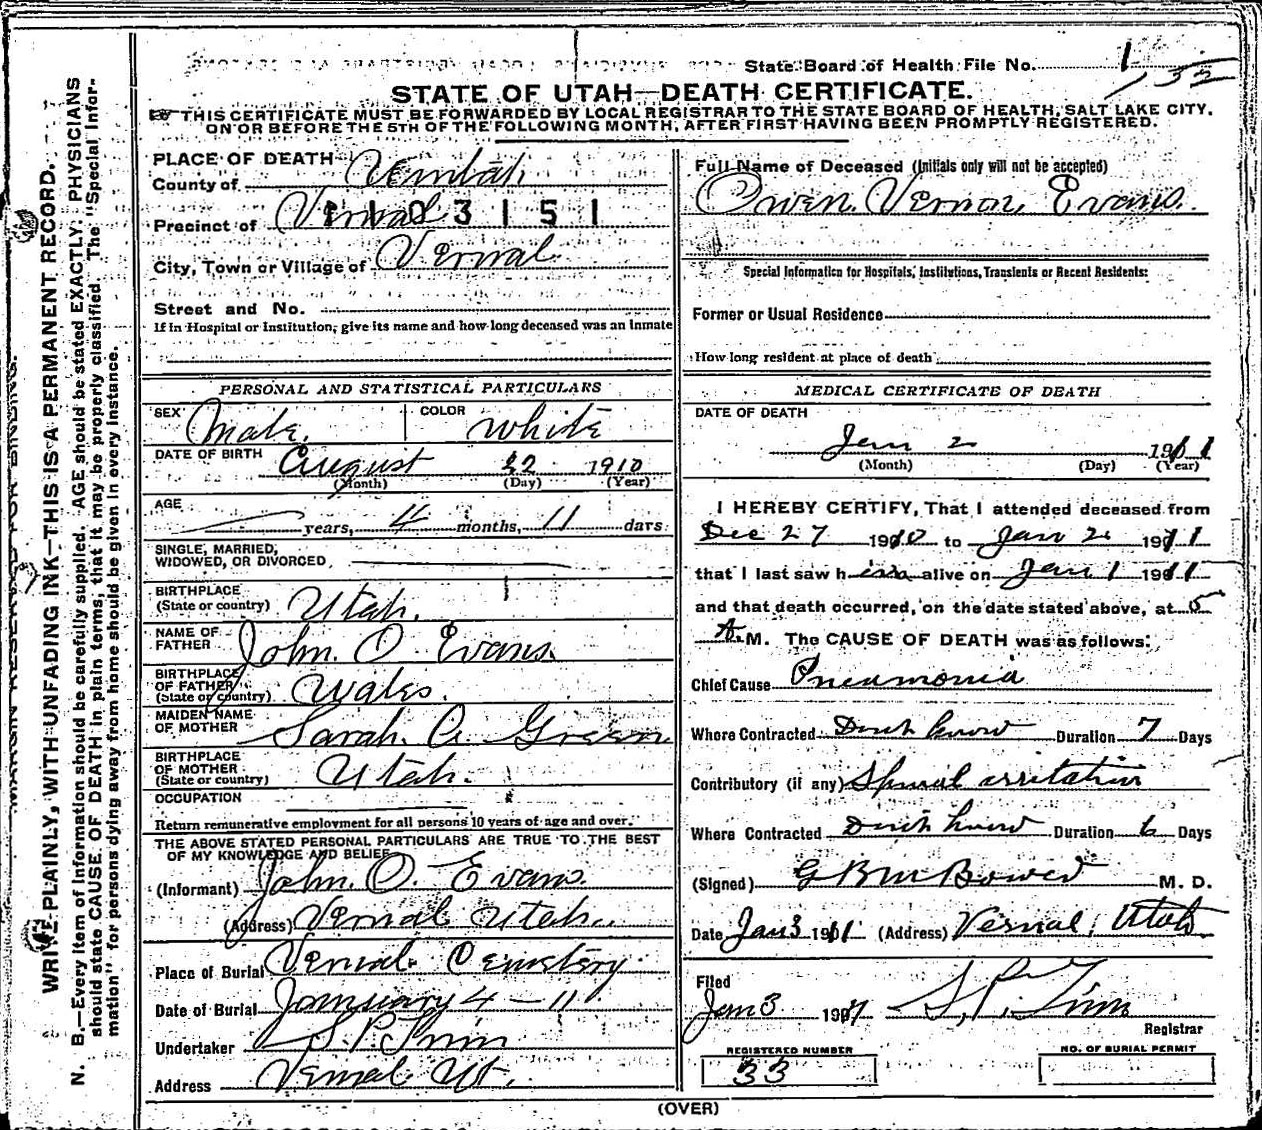 State Board of Health File No. 1
STATE OF UTAH—DEATH CERTIFICATE.
THIS CERTIFICATE MUST BE FORWARDED BY LOCAL REGISTRAR TO THE STATE BOARD OF HEALTH, SALT LAKE CITY,
ON OR BEFORE THE 5TH OF THE FOLLOWING MONTH, AFTER FIRST HAVING BEEN PROMPTLY REGISTERED.
WRITE PLAINLY, WITH UNFADING INK—THIS IS A PERMANENT RECORD.
N. B.—Every item of information should be carefully supplied. AGE should be stated EXACTLY. PHYSICIANS
should state CAUSE OF DEATH in plain terms, that it may be properly classified. The "Special Infor-
mation" for persons dying away from home should be given in every instance.
PLACE OF DEATH
County of Uintah
Precinct of Vernal 1103151
City, Town or Village of Vernal
Street and No.
If in Hospital or Institution, give its name and how long deceased was an inmate
PERSONAL AND STATISTICAL PARTICULARS
SEX Male. COLOR White
DATE OF BIRTH August 22 1910
(Month) (Day) (Year)
AGE
years, 4 months, 11 days
SINGLE, MARRIED,
WIDOWED, OR DIVORCED
BIRTHPLACE
(State or country) Utah.
NAME OF
FATHER John. O. Evans.
BIRTHPLACE
OF FATHER
(State or country) Wales.
MAIDEN NAME
OF MOTHER Sarah. A. Green
BIRTHPLACE
OF MOTHER
(State or country) Utah.
OCCUPATION
Return remunerative employment for all persons 10 years of age and over.
THE ABOVE STATED PERSONAL PARTICULARS ARE TRUE TO THE BEST
OF MY KNOWLEDGE AND BELIEF
(Informant) John. O. Evans.
(Address) Vernal Utah.
Place of Burial Vernal Cemetery
Date of Burial January 4 – 11
Undertaker S. P.
Address Vernal Ut.
Full Name of Deceased (Initials only will not be accepted)
Owen. Vernon. Evans.
Special Information for Hospitals, Institutions, Transients or Recent Residents:
Former or Usual Residence
How long resident at place of death
MEDICAL CERTIFICATE OF DEATH
DATE OF DEATH
Jan 2 1911
(Month) (Day) (Year)
I HEREBY CERTIFY, That I attended deceased from
Dec 27 1910 to Jan 2 1911
that I last saw him alive on Jan 1 1911
and that death occurred, on the date stated above, at 5
A. M. The CAUSE OF DEATH was as follows:
Chief Cause Pneumonia
Where Contracted Dont know Duration 7 Days
Contributory (if any) Spinal irritation
Where Contracted Dont know Duration 6 Days
(Signed) M. D.
Date Jan 3 1911 (Address) Vernal, Utah
Filed
Jan 3 S. P.
Registrar
REGISTERED NUMBER
33
NO. OF BURIAL PERMIT
(OVER)